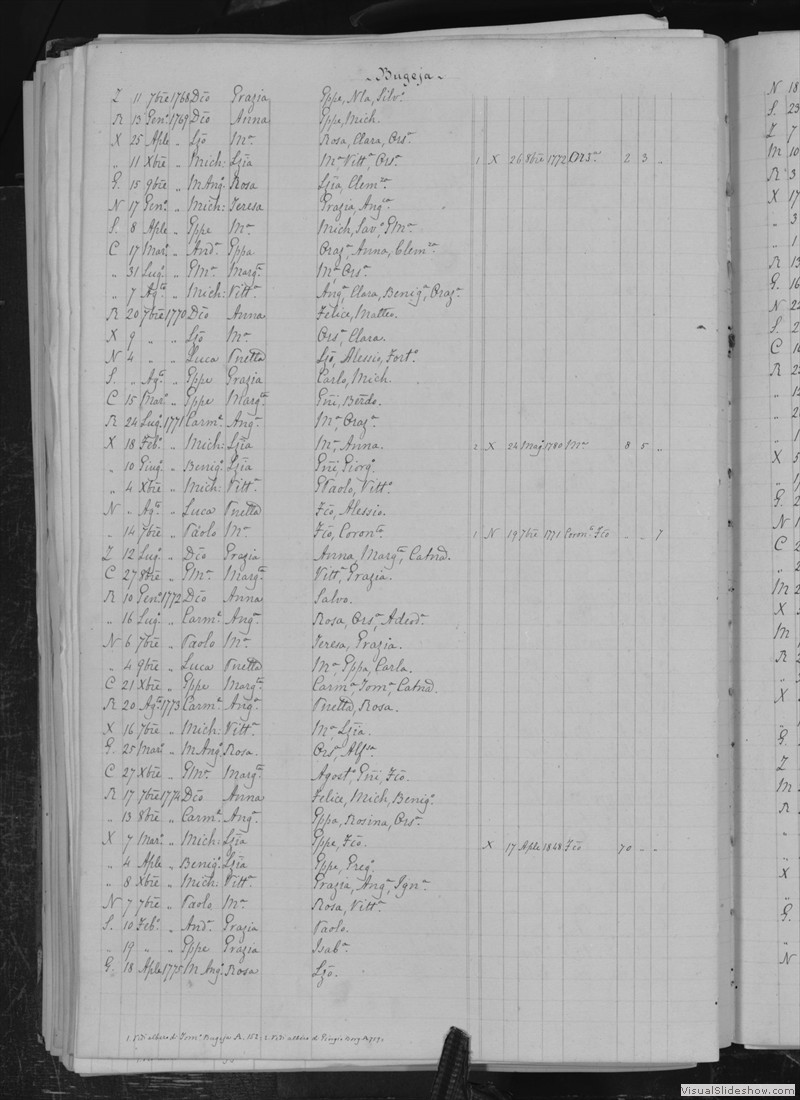 Bugeja
Z 11 7bre 1768 Dco Grazia Gppe, Nla, Silvo.
R 13 Geno. 1769 Dco Anna Gppe, Mich.
X 25 Aple „ Lzo Ma. Rosa, Clara, Orsa.
„ 11 Xbre „ Mich: Lzia Ma. Vitta. Orsa. 1 X 26 8bre 1772 Orsa. 2 3 „
G. 15 9bre „ M Ango. Rosa Lzia, Clemza.
N 17 Geno. „ Mich: Teresa Grazia, Anga.
S. 8 Aple „ Gppe Ma. Mich, Savo. GMa.
C 17 Maro. „ Anda. Gppa Oraza. Anna, Clemza.
„ 31 Lugo. „ GMa. Marga. Ma. Orsa.
„ 7 Aga. „ Mich: Vitta. Anga. Clara, Beniga. Oraza.
R 20 7bre 1770 Dco Anna Felice, Matteo.
X 9 „ „ Lzo Ma. Orsa. Clara.
N 4 „ „ Luca Pnetta Lzo, Alessio, Forto.
S. „ Aga. „ Gppe Grazia Carlo, Mich.
C 15 Maro. „ Gppe Marga. Gni, Berdo.
R 24 Lugo. 1771 Carme. Anga. Ma. Oraza.
X 18 Febo. „ Mich: Lzia Ma. Anna. 2 X 24 Mago. 1780 Ma. 8 5 „
„ 10 Giugo. „ Benigo. Lzia Gni, Giorgo.
„ 4 Xbre „ Mich: Vitta. GPaolo, Vitto.
N „ Aga. „ Luca Pnetta Fco, Alessio.
„ 14 7bre „ Paolo Ma. Fco, Corono. 1 N 19 7bre 1771 Corono. Fco - - 7
Z 12 Lugo. „ Dco Grazia Anna, Marga, Catna.
C 27 8bre „ GMa. Marga. Vitta. Grazia.
R 10 Geno. 1772 Dco Anna Salvo.
„ 16 Lugo. „ Carme. Anga. Rosa, Orsa. Adeoda.
N 6 7bre „ Paolo Ma. Teresa, Grazia.
„ 4 9bre „ Luca Pnetta Ma. Gppa, Carla.
C 21 Xbre „ Gppe Marga. Carma. Toma. Catna.
R 20 Aga. 1773 Carme. Anga. Pnetta, Rosa.
X 16 7bre „ Mich: Vitta. Ma. Lzia.
G. 25 Maro. „ M Ango. Rosa. Orsa. Alfsa
C 27 Xbre „ GMa. Marga. Agosto. Gni, Fco.
R 17 7bre 1774 Dco Anna Felice, Mich, Benigo.
„ 13 8bre „ Carme. Anga. Gppa, Rosina, Orsa.
X 7 Maro. „ Mich: Lzia Gppe, Fco. X 17 Aple 1848 Fco 70 - -
„ 4 Aple „ Benigo. Lzia Gppe, Grego.
„ 8 Xbre „ Mich: Vitta. Grazia, Anga. Igna.
N 7 7bre „ Paolo Ma. Rosa, Vitta.
S. 10 Febo. „ Anda. Grazia Paolo.
„ 19 „ „ Gppe Grazia Isaba.
G. 18 Aple 1775 M Ango. Rosa Lzo.
1. Vedi albero di Tomo. Bugeja 152; 2. Vedi albero di
VisualSlideshow.com